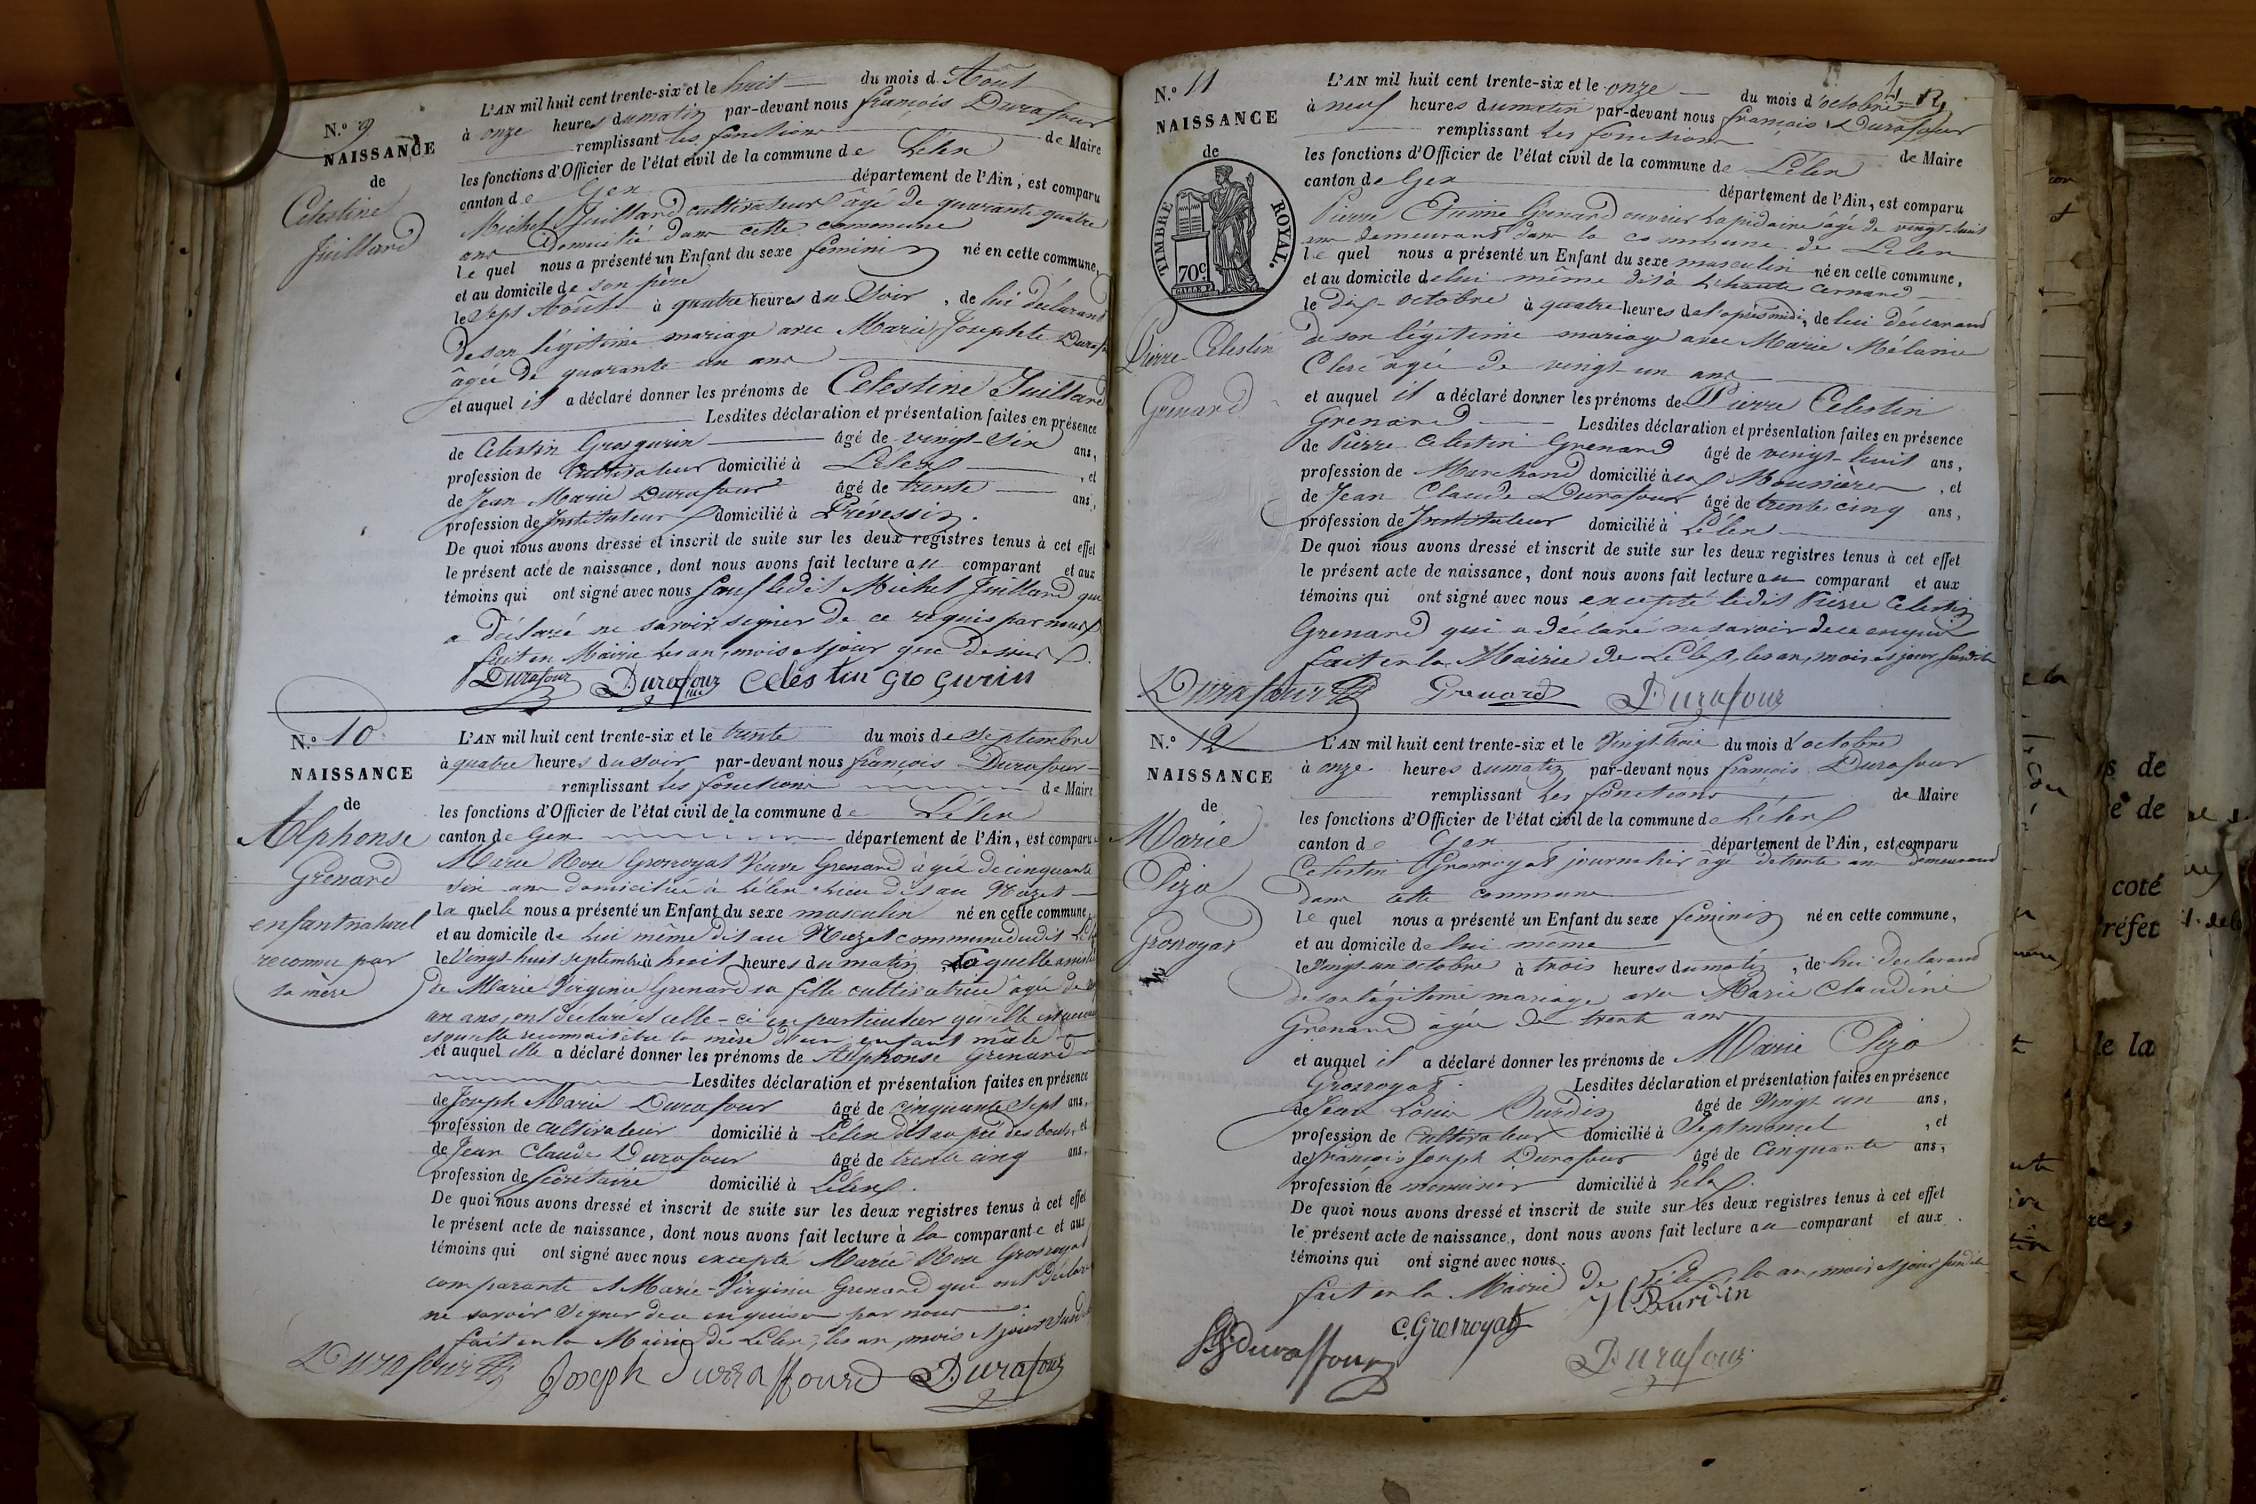 N.° 9
NAISSANCE
de
Celestine
Juillard
L'AN mil huit cent trente-six et le huit du mois d'Août
à onze heures du matin par-devant nous françois Durafour
remplissant les fonctions de Maire
les fonctions d'Officier de l'état civil de la commune de Lélex
canton de Gex département de l'Ain, est comparu
Michel Juillard cultivateur âgé de quarante quatre
ans Domicilié dans cette commune
le quel nous a présenté un Enfant du sexe féminin né en cette commune,
et au domicile de son père
le Sept Août à quatre heures du Soir, de lui déclarant
de son légitime mariage avec Marie Josephte
âgée de quarante un ans
et auquel il a déclaré donner les prénoms de Celestine Juillard
Lesdites déclaration et présentation faites en présence
de Celestin Grosgurin âgé de vingt-six ans,
profession de Cultivateur domicilié à Lélex, et
de Jean Marie Durafour âgé de trente ans,
profession de Instituteur domicilié à Prevessin.
De quoi nous avons dressé et inscrit de suite sur les deux registres tenus à cet effet
le présent acte de naissance, dont nous avons fait lecture au comparant et aux
témoins qui ont signé avec nous sauf ledit Michel Juillard qui
a déclaré ne savoir signer de ce requis par nous
fait en Mairie les an, mois et jour que dessus
Durafour Durafour Celestin Gro Gurin
N.° 10
NAISSANCE
de
Alphonse
Grenard
enfant naturel
reconnu par
sa mère
L'AN mil huit cent trente-six et le trente du mois de Septembre
à quatre heures du soir par-devant nous françois Durafour
remplissant les fonctions de Maire
les fonctions d'Officier de l'état civil de la commune de Lélex
canton de Gex département de l'Ain, est comparu
Marie Rose Grosroyat Veuve Grenard âgée de cinquante
six ans domiciliée à Lélex lieu dit au Niozet
la quelle nous a présenté un Enfant du sexe masculin né en cette commune,
et au domicile de lui même dit au Niozet commune dudit
le Vingt-huit septembre à huit heures du matin, la quelle
de Marie Virginie Grenard sa fille cultivatrice âgée de
un ans, ont déclaré et celle-ci en particulier qu'elle
et qu'elle reconnait être la mère d'un enfant mâle
et auquel elle a déclaré donner les prénoms de Alphonse Grenard
Lesdites déclaration et présentation faites en présence
de Joseph Marie Durafour âgé de cinquante Sept ans,
profession de cultivateur domicilié à Lélex dit au pré des bouts, et
de Jean Claude Durafour âgé de trente cinq ans,
profession de Secrétaire domicilié à Lélex.
De quoi nous avons dressé et inscrit de suite sur les deux registres tenus à cet effet
le présent acte de naissance, dont nous avons fait lecture à la comparante et aux
témoins qui ont signé avec nous excepté Marie Rose Grosroyat
comparante et Marie-Virginie Grenard qui ont déclaré
ne savoir signer de ce enquises par nous
fait en la Mairie de Lélex, les an, mois et jour
Durafour Joseph Durraffourd Durafour
N.° 11
NAISSANCE
de
TIMBRE ROYAL.
70c
Pierre Celestin
Grenard
L'AN mil huit cent trente-six et le onze du mois d'octobre
à neuf heures du matin par-devant nous françois Durafour
remplissant les fonctions de Maire
les fonctions d'Officier de l'état civil de la commune de Lélex
canton de Gex département de l'Ain, est comparu
Pierre Grenard ouvrier Lapidaire âgé de vingt-huit
ans demeurant dans la commune de Lélex
le quel nous a présenté un Enfant du sexe masculin né en cette commune,
et au domicile de lui même dit à
le dix octobre à quatre heures de l'après midi, de lui déclarand
de son légitime mariage avec Marie Mélanie
Clerc âgée de vingt un ans
et auquel il a déclaré donner les prénoms de Pierre Celestin
Grenard Lesdites déclaration et présentation faites en présence
de Pierre Celestin Grenard âgé de vingt-huit ans,
profession de Marchand domicilié à, et
de Jean Claude Durafour âgé de trente cinq ans,
profession de Instituteur domicilié à Lélex
De quoi nous avons dressé et inscrit de suite sur les deux registres tenus à cet effet
le présent acte de naissance, dont nous avons fait lecture au comparant et aux
témoins qui ont signé avec nous excepté ledit Pierre Celestin
Grenard qui a déclaré ne savoir de ce enquis
fait en la Mairie de Lélex, les an, mois et jour susdits
Durafour Grenard Durafour
N.° 12
NAISSANCE
de
Marie
Eliza
Grosroyat
L'AN mil huit cent trente-six et le Vingt trois du mois d'octobre
à onze heures du matin par-devant nous françois Durafour
remplissant les fonctions de Maire
les fonctions d'Officier de l'état civil de la commune de Lélex
canton de Gex département de l'Ain, est comparu
Celestin Grosroyat journalier âgé de trente ans demeurand
dans cette commune
le quel nous a présenté un Enfant du sexe féminin né en cette commune,
et au domicile de lui même
le Vingt-un octobre à trois heures du matin, de lui declarand
de son légitime mariage avec Marie Claudine
Grenard âgée de trente ans
et auquel il a déclaré donner les prénoms de Marie Eliza
Grosroyat. Lesdites déclaration et présentation faites en présence
de Jean Louis Burdin âgé de Vingt un ans,
profession de cultivateur domicilié à Septmoncel, et
de françois Joseph Durafour âgé de Cinquante ans,
profession de menuisier domicilié à Lélex.
De quoi nous avons dressé et inscrit de suite sur les deux registres tenus à cet effet
le présent acte de naissance, dont nous avons fait lecture au comparant et aux
témoins qui ont signé avec nous.
fait en la Mairie de Lélex, les an, mois et jour susdits
C. Grosroyat Jl Burdin
duraffour Durafour